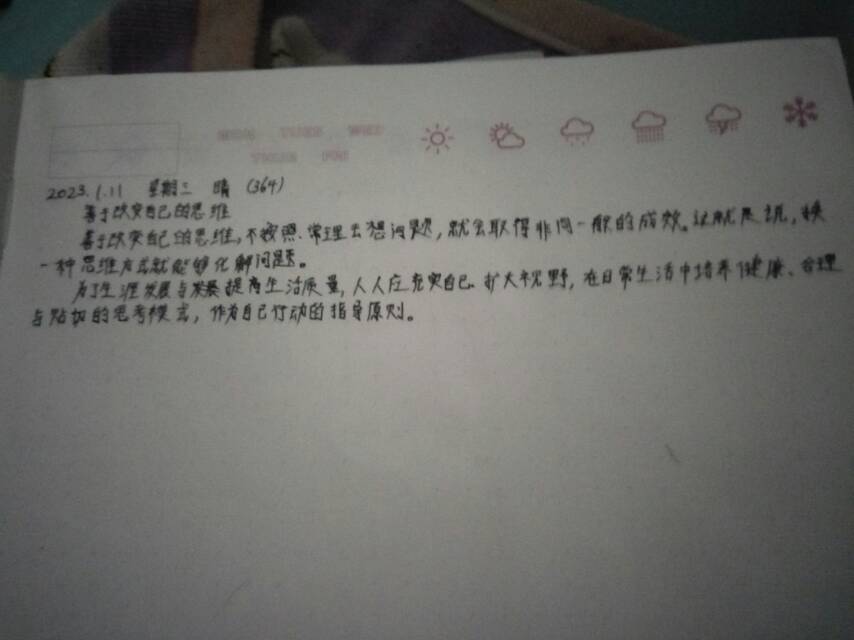 MON TUES WED
THUR FRI
2023.1.11 星期三 晴 (364)
善于改变自己的思维
善于改变自己的思维,不按照常理去想问题,就会取得非同一般的成效。这就是说,换
一种思维方式就能够化解问题。
为了生涯发展与发展提高生活质量,人人应充实自己、扩大视野,在日常生活中培养健康、合理
与贴切的思考模式,作为自己行动的指导原则。